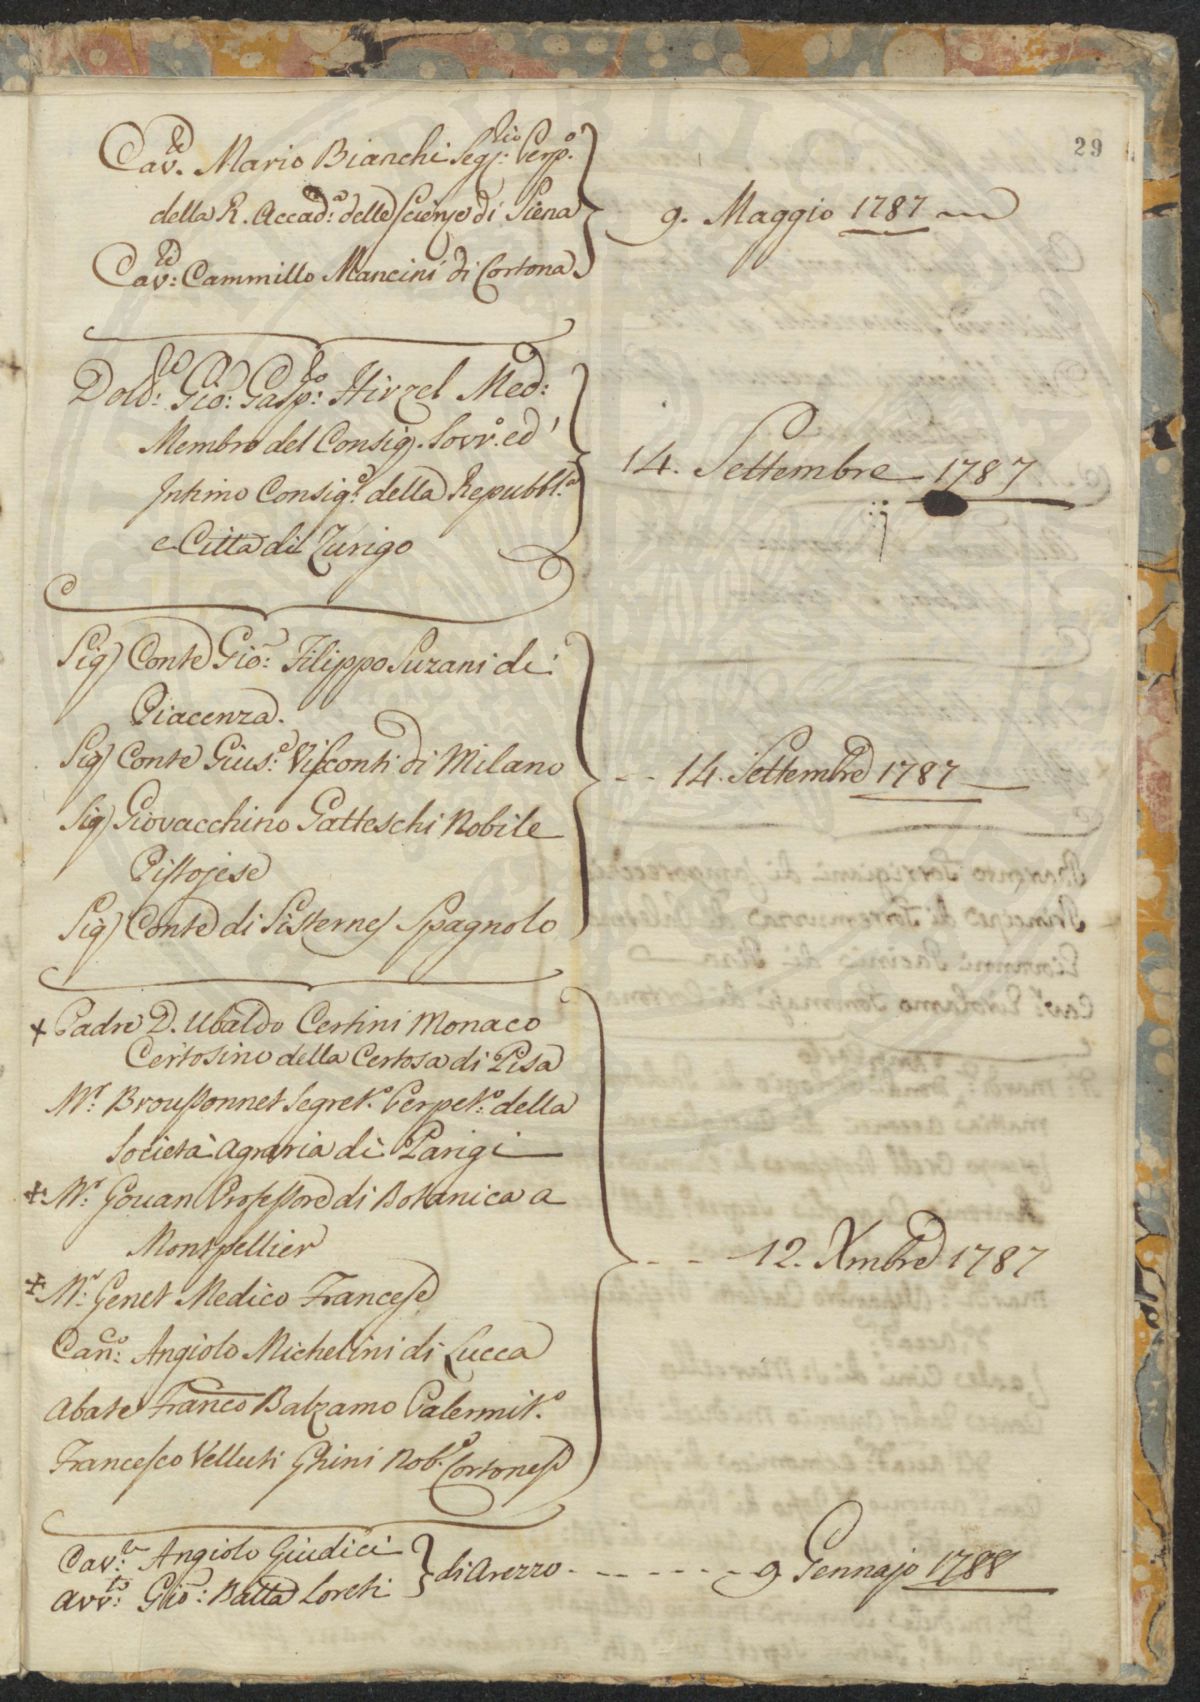 29
Cav.e Mario Bianchi Seg:rio Perp.o
della R. Accad:a delle Scienze di Siena
9. Maggio 1787
Cav:e Cammillo Mancini di Cortona
Gio: Gasp:ro Hirzel Med:
Membro del Consig. Sovr.o ed
14. Settembre 1787
Intimo Consig.e della Repubbl.a
e Città di Zurigo
Sig Conte Gio: Filippo Suzani di
Piacenza.
Sig Conte Gius.e Visconti di Milano
14. Settembre 1787
Sig Giovacchino Gatteschi Nobile
Pistojese
Sig Conte di Sisternes Spagnolo
+ Padre D. Ubaldo Certini Monaco
Certosino della Certosa di Pisa
Mr: Broussonnet Segret.o Perpet:o della
Società Agraria di Parigi
+ Mr: Gouan Professore di Botanica a
Montpellier
12. Xmbre 1787
+ Mr: Genet Medico Francese
Can:co Angiolo Michelini di Lucca
Abate Franco Balzamo Palermit.o
Francesco Velluti Ghini Nob.e Cortonese
Cav:re Angiolo Giudici
di Arezzo - - - - - - - 9 Gennajo 1788
Avv:to Gio: Batta Loreti